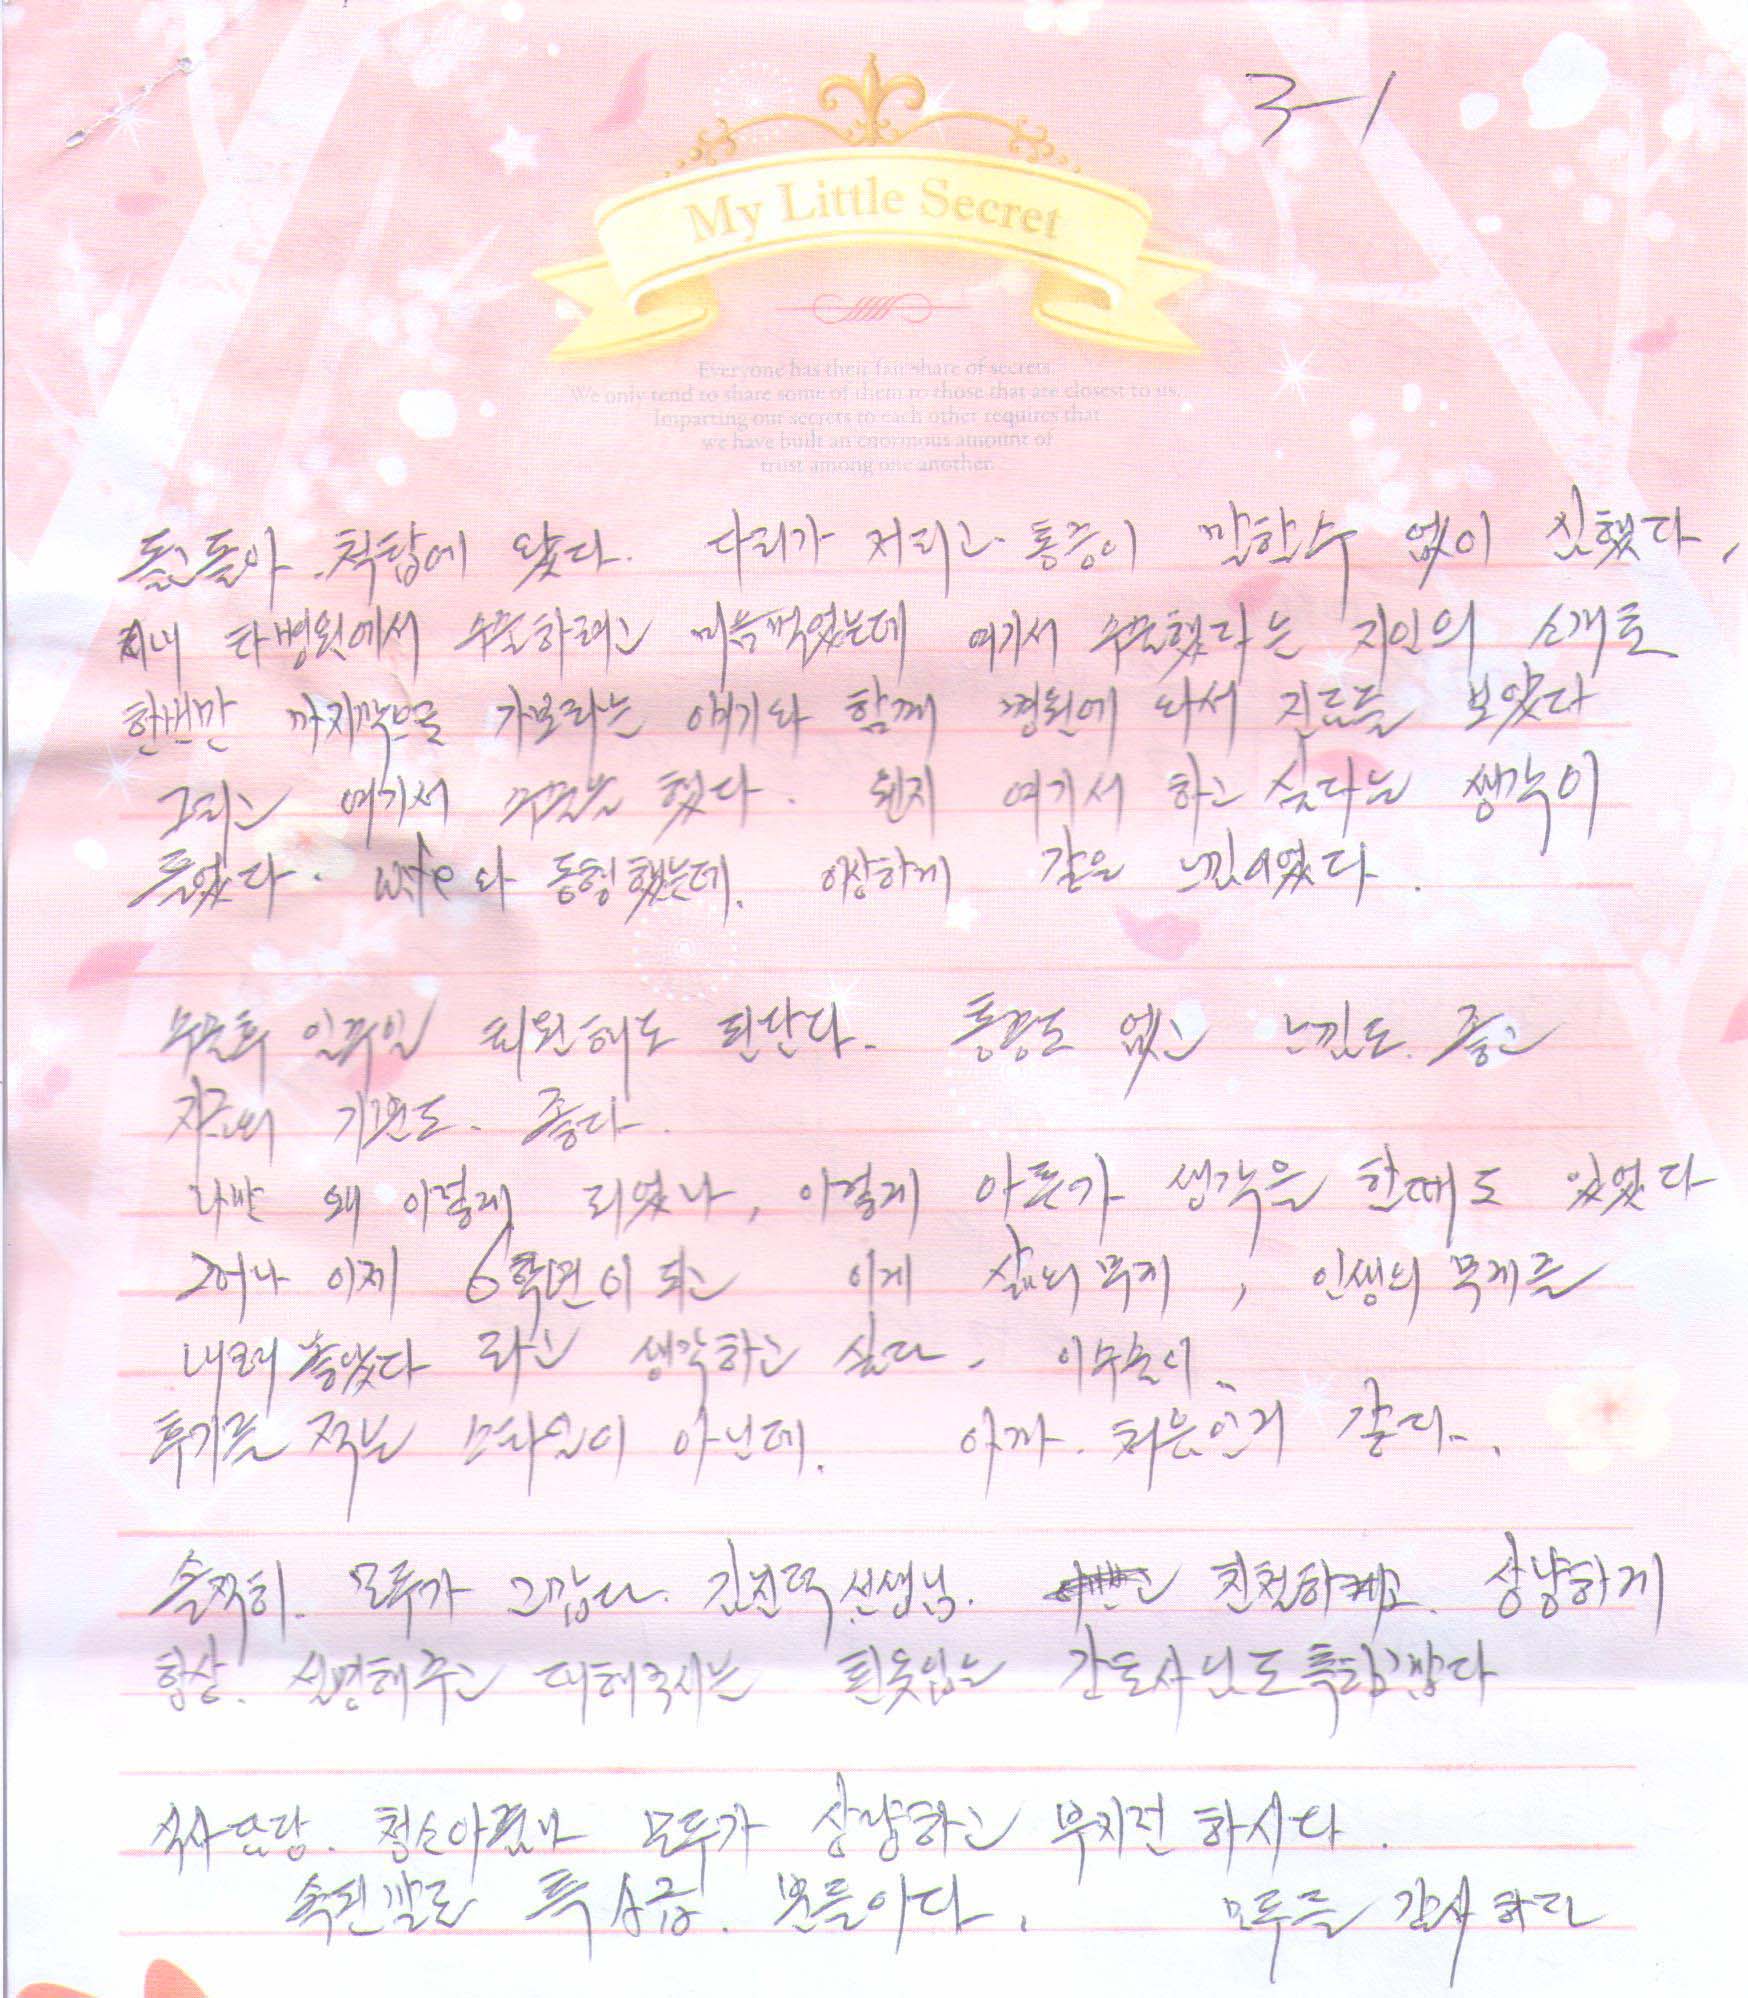 3-1
My Little Secret
Everyone has their fair share of secrets.
We only tend to share some of them to those that are closest to us.
Imparting our secrets to each other requires that
we have built an enormous amount of
trust among one another.
돌고돌아. 척탑에 왔다. 다리가 저리고. 통증이 말할수 없이 심했다.
타병원에서 수술하려고 마음먹었는데 여기서 수술했다는 지인의 소개로
한번만 마지막으로 가보라는 얘기와 함께 병원에 와서 진료를 보았다
그리고 여기서 수술을 했다. 왠지 여기서 하고 싶다는 생각이
들었다. wife와 동행했는데. 이상하게 같은 느낌이었다.
수술후 일주일 퇴원해도 된단다. 통증도 없고 느낌도. 좋고
지금의 기분도. 좋다.
나만 왜 이렇게 되었나, 이렇게 아픈가 생각을 한때도 있었다
그러나 이제 6학년이 되고 이게 삶의 무게, 인생의 무게를
내려 놓았다 라고 생각하고 싶다. 이수술이..
후기를 적는 스타일이 아닌데. 아마. 처음인거 같다..
솔직히. 모두가 고맙다. 김진덕 선생님. 친절하게고. 상냥하게
항상. 설명해주고 대해주시는 흰옷입는 간호사님도 특히
식사 담당. 청소아줌마 모두가 상냥하고 부지런 하시다.
특A급. 분들이다. 모두들 감사하다